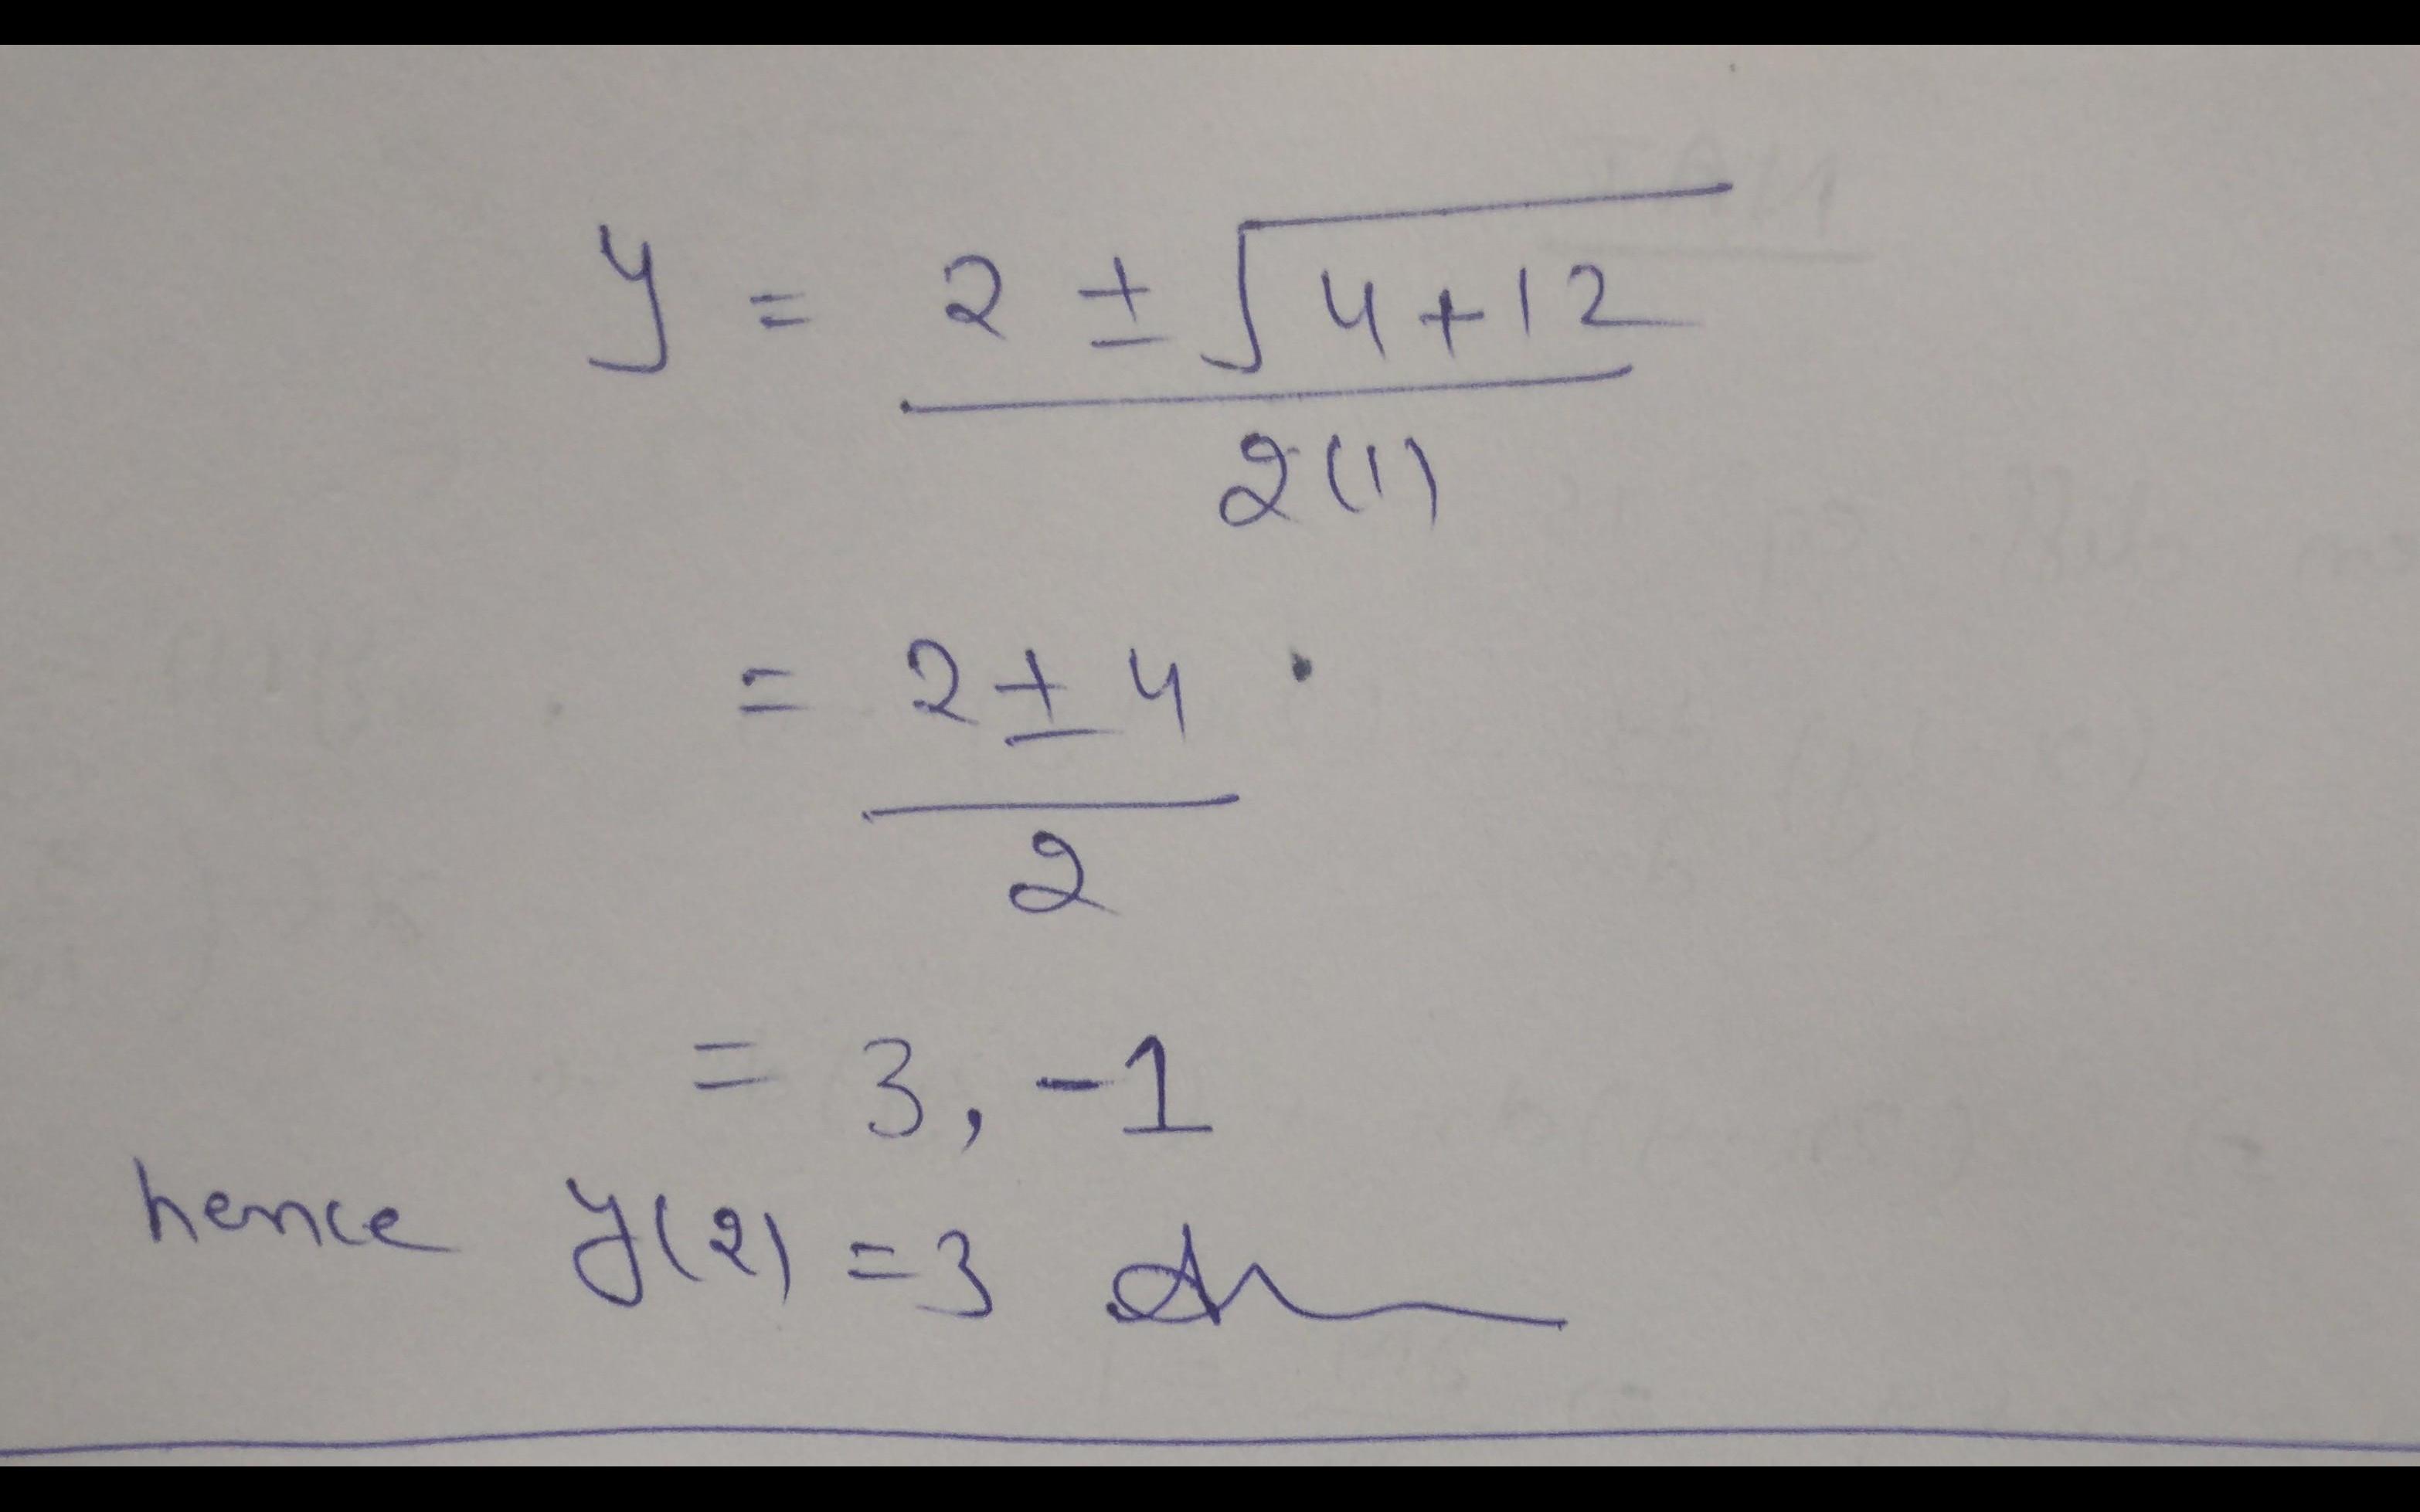 y = 2 ± √4+12
2(1)
= 2 ± 4
2
= 3, -1
hence y(2) = 3